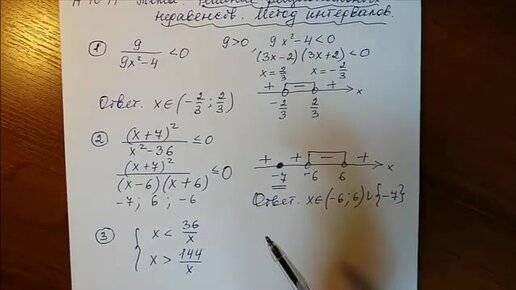 неравенств. Метод интервалов.
① 9/(9x²-4) < 0   9>0   9x²-4<0
(3x-2)(3x+2)<0
x=2/3   x=-2/3
+ - + x
-2/3 2/3
Ответ. x∈(-2/3; 2/3)
② (x+7)²/(x²-36) ≤ 0
(x+7)²/((x-6)(x+6)) ≤ 0
-7; 6; -6
+ + - + x
-7 -6 6
Ответ. x∈(-6;6)∪{-7}
③ { x < 36/x
x > 144/x